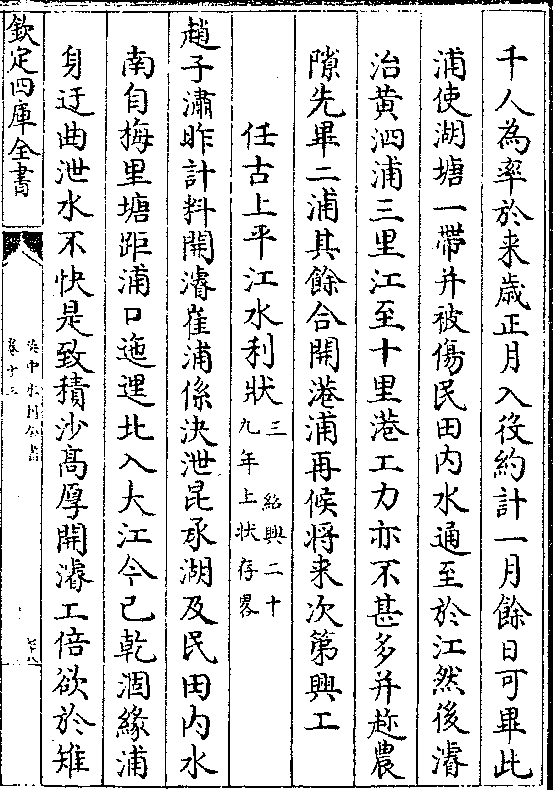 千人為率於来歳正月入役約計一月餘日可畢此
浦使湖塘一帶并被傷民田内水通至於江然後濬
治黄泗浦三里江至十里港工力亦不甚多并趂農
隙先畢二浦其餘合開港浦再候将来次第興工
任古上平江水利狀三 紹興二十
九年上狀存畧
趙子潚昨計料開濬崔浦係決泄昆承湖及民田内水
南自梅里塘距浦口迤𨓦北入大江今已乾涸緣浦
身迂曲泄水不快是致積沙髙厚開濬工倍欲於雉
欽定四庫全書
吳中水利全書
卷十三